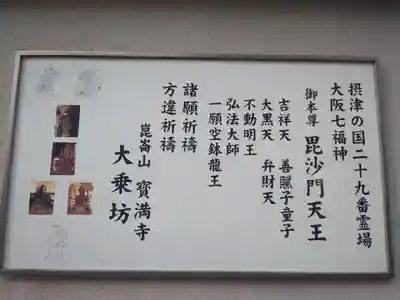 摂津の国二十九番霊場
大阪七福神
御本尊 毘沙門天王
吉祥天 善膩子童子
大黒天 弁財天
不動明王
弘法大師
一願空鉢龍王
諸願祈禱
方違祈禱
崑崙山 寳満寺
大乗坊